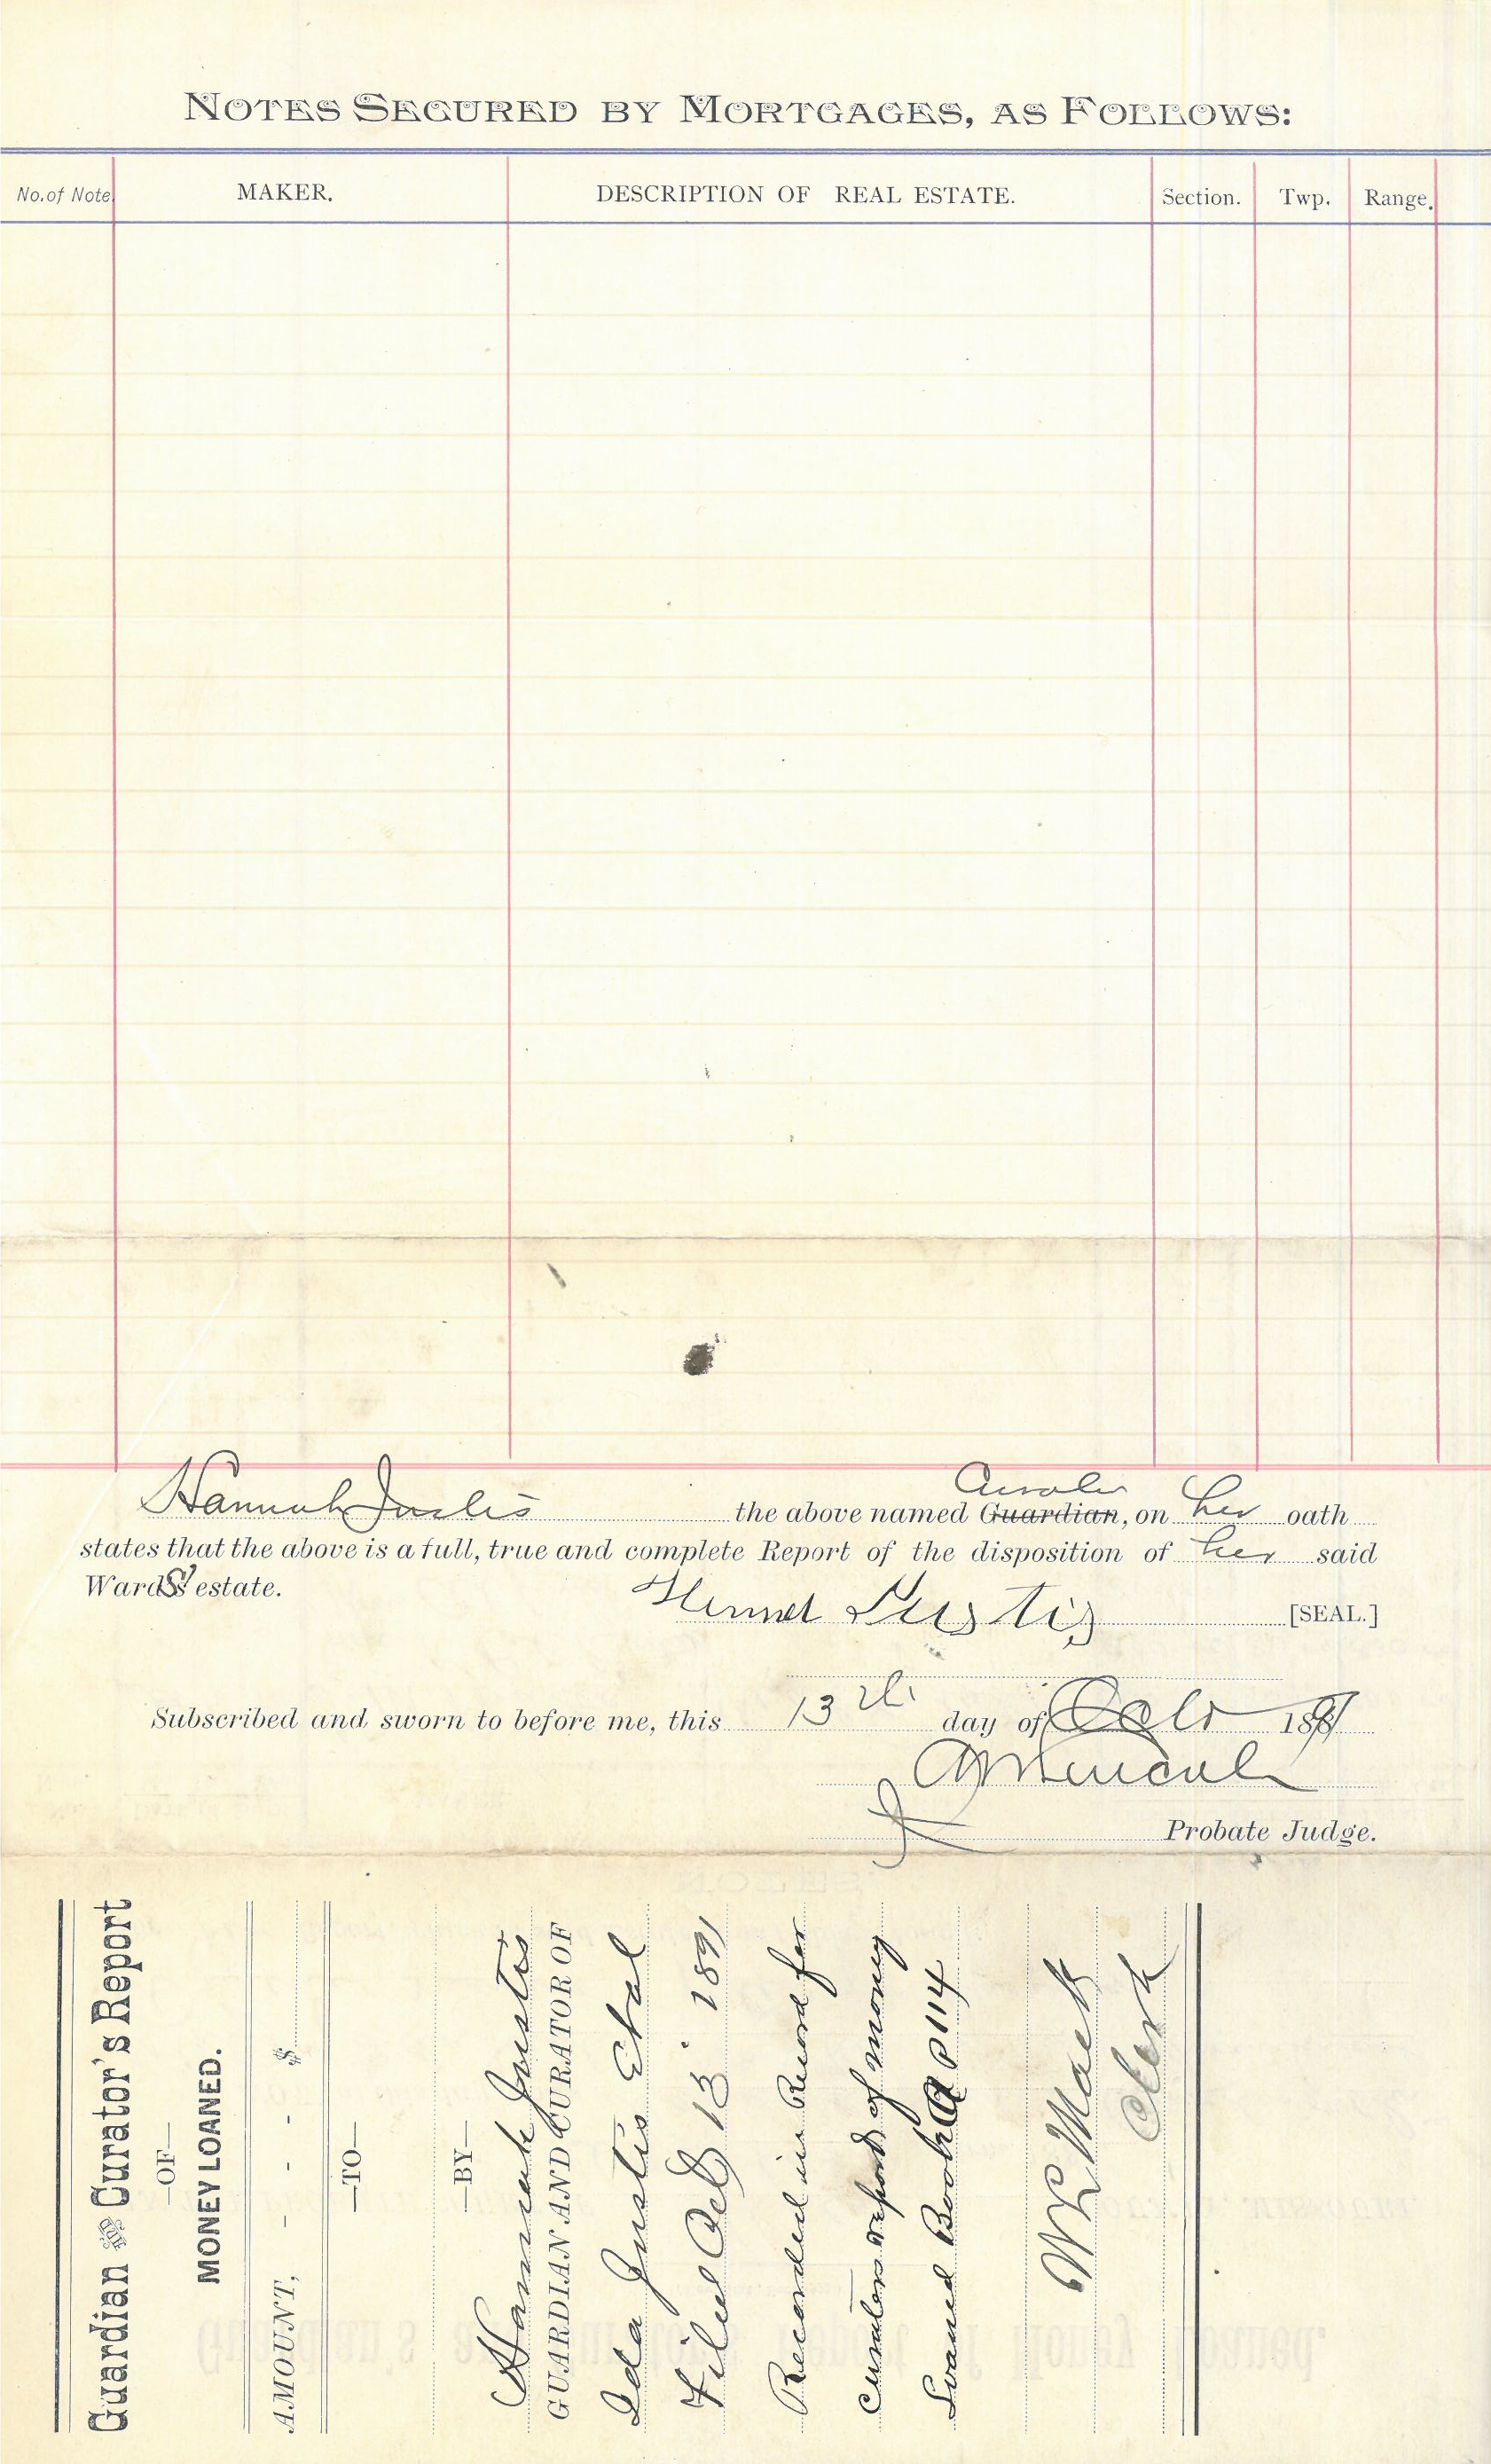 NOTES SECURED BY MORTGAGES, AS FOLLOWS:
No. of Note MAKER. DESCRIPTION OF REAL ESTATE. Section. Twp. Range.
Hannah Justis the above named Guardian, on her oath
states that the above is a full, true and complete Report of the disposition of her said
Wards' estate.
Justis [SEAL.]
Subscribed and sworn to before me, this 13th day of Oct 1891
Probate Judge.
Guardian & Curator's Report
—OF—
MONEY LOANED.
AMOUNT, - - - $
—TO—
—BY—
Hannah Justis
GUARDIAN AND CURATOR OF
Ida Justis Etal
Filed Oct 13 1891
Recorded in Record for
Curators reports of money
Loaned Book A P 114
Clerk